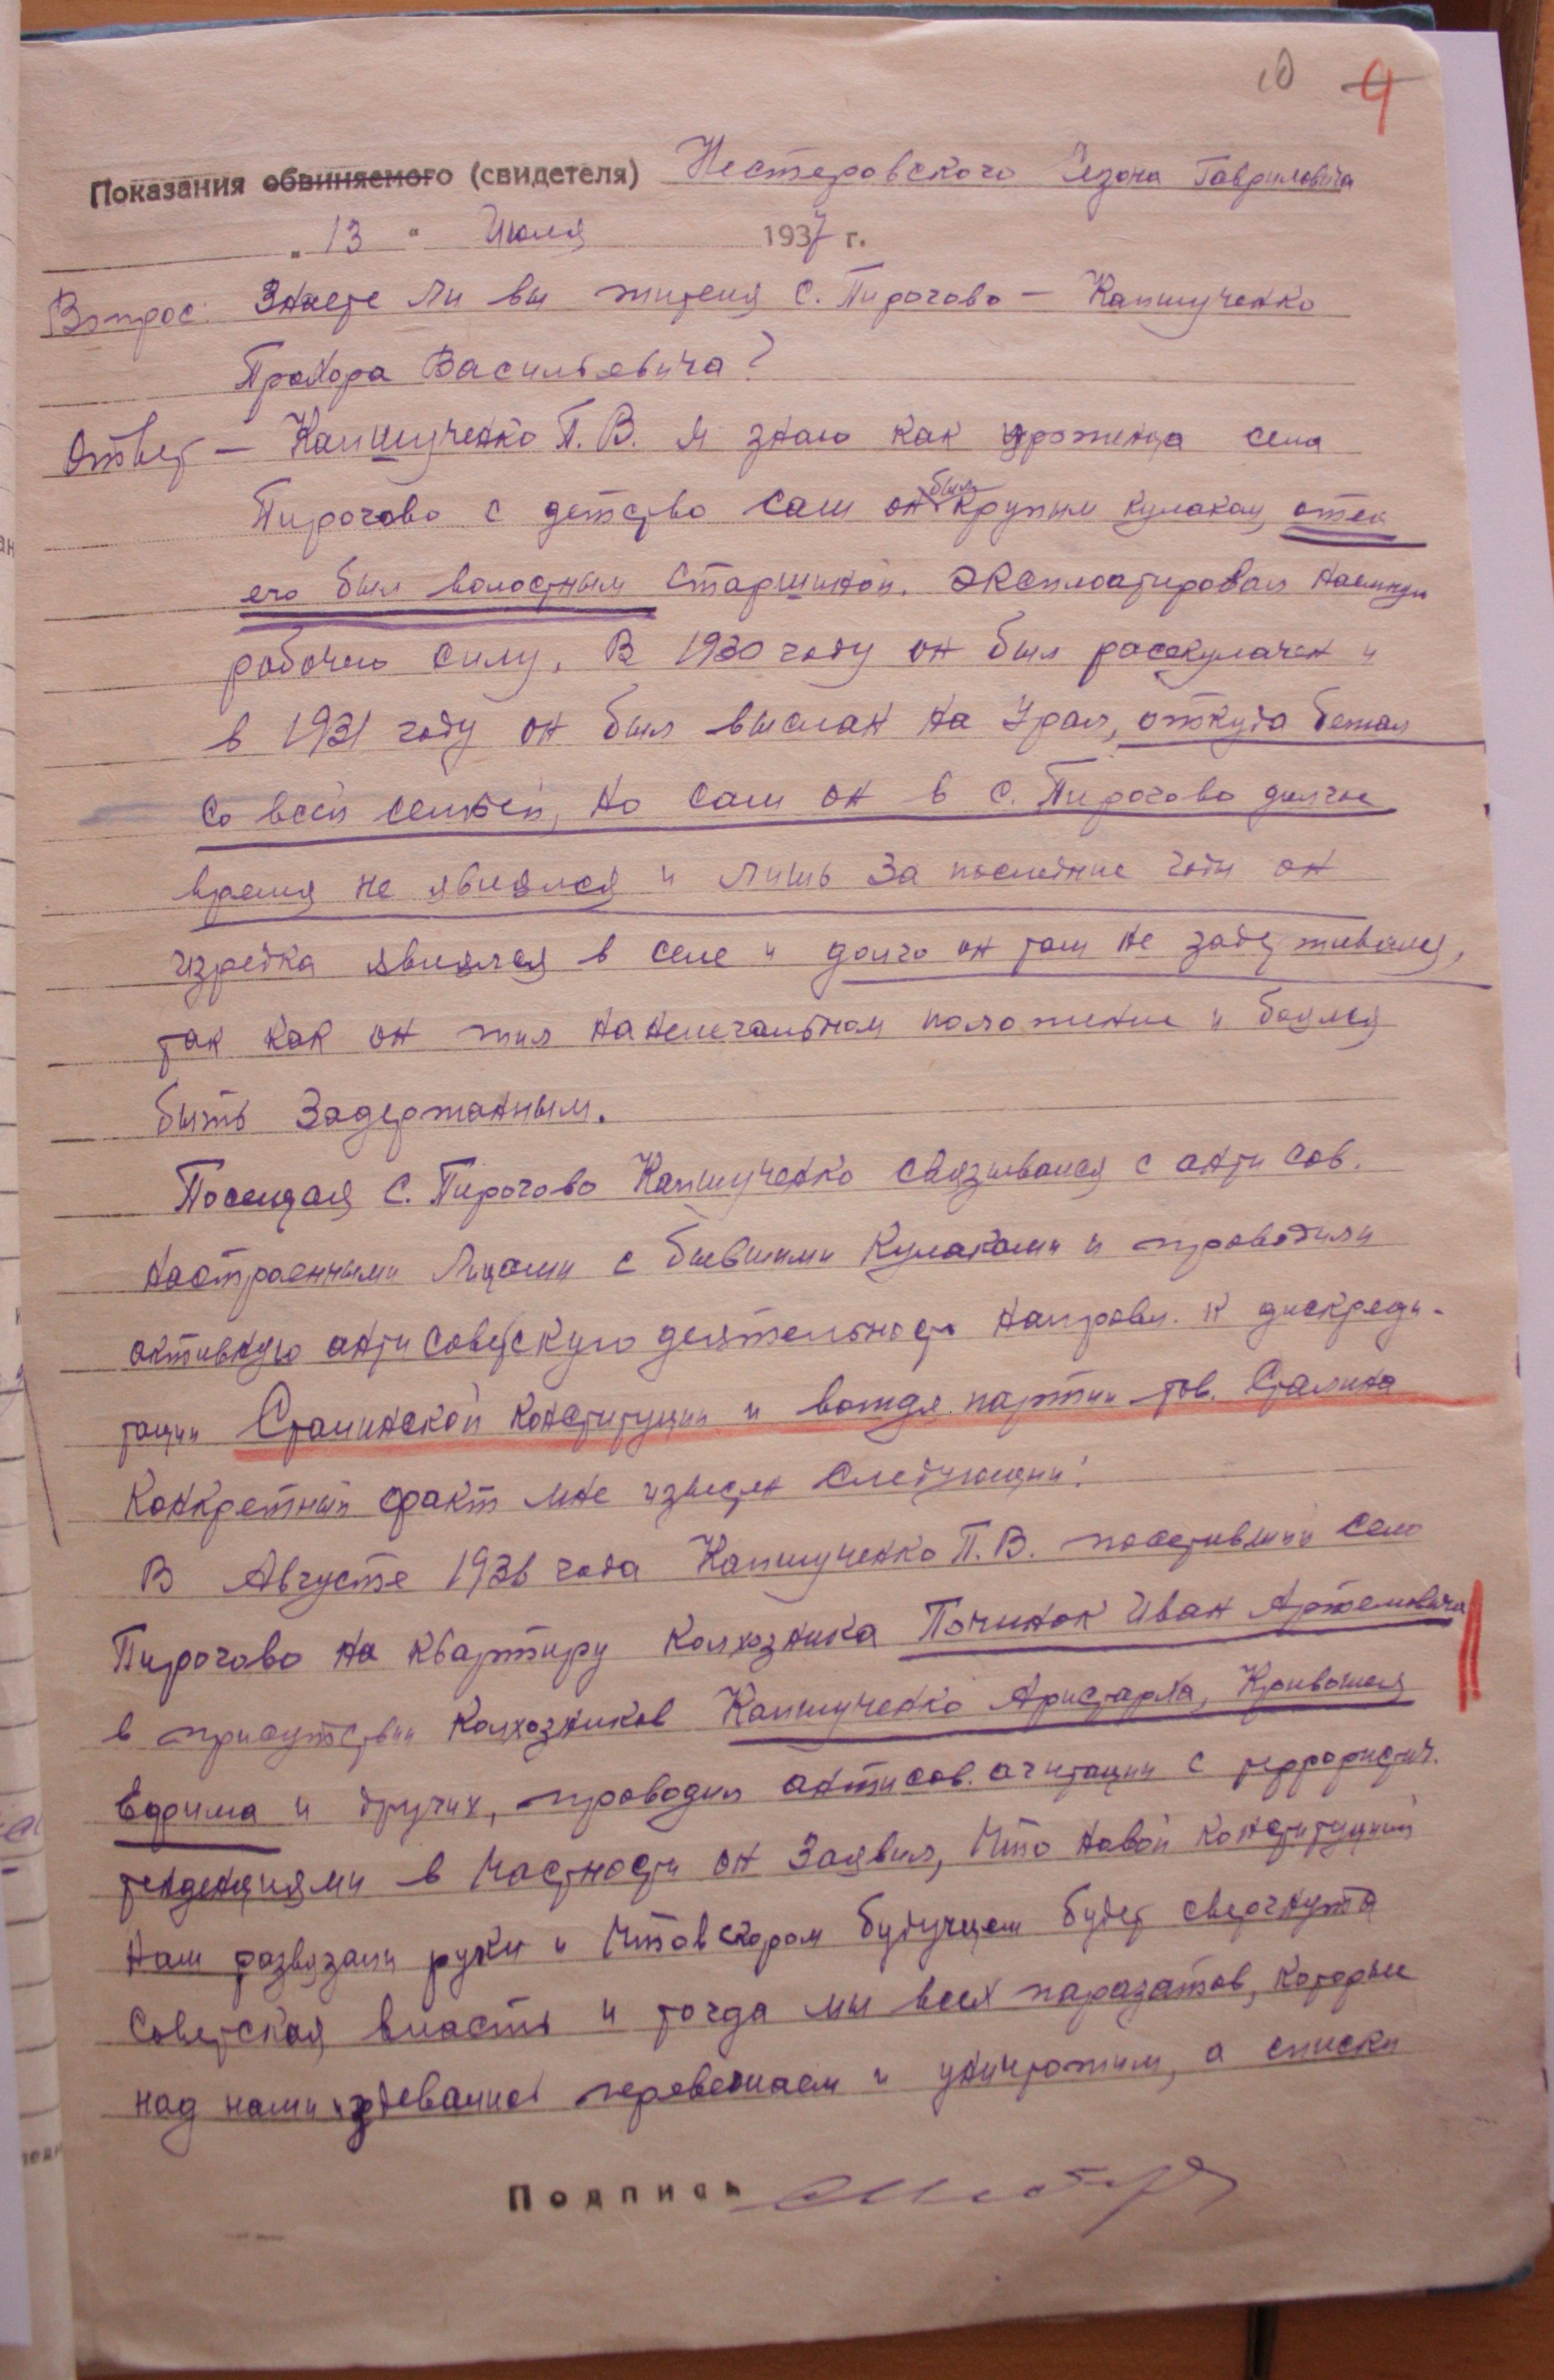 10 9
Показания обвиняемого (свидетеля) Нестеровского Сезона Гавриловича
„ 13 " Июля 1937 г.
Вопрос: Знаете ли вы жителя с. Пирогово – Капшученко
Прохора Васильевича?
Ответ – Капшученко П. В. я знаю как уроженца села
Пирогово с детство сам он был крупным кулаком, отец
его был волостным старшиной. Эксплоатировал наемную
рабочую силу, В 1930 году он был раскулачен и
в 1931 году он был выслан на Урал, откуда бежал
со всей семьей, но сам он в с. Пирогово долгое
время не являлся и лишь за последние годы он
изредка являлся в селе и долго он там не задерживался,
так как он жил на нелегальном положение и боялся
быть задержанным.
Посещая с. Пирогово Капшученко связывался с анти сов.
настроенными лицами с бывшими кулаками и проводили
активную анти советскую деятельность направл. к дискреди-
тации Сталинской конституции и вождя партии тов. Сталина
Конкретный факт мне известен следующий:
В Августе 1936 года Капшученко П. В. посетивший село
Пирогово на квартиру колхозника Починок Иван Артемовича
в присутствии колхозников Капшученко Аристарха, Кривошея
Ефрима и других, проводил антисов. агитации с террористич.
тенденциями в частности он заявил, что новой конституцией
нам развязали руки и что в скором будущем будет свергнута
советская власть и тогда мы всех паразатов, которые
над нами издевались перевешаем и уничтожим, а списки
Подпись